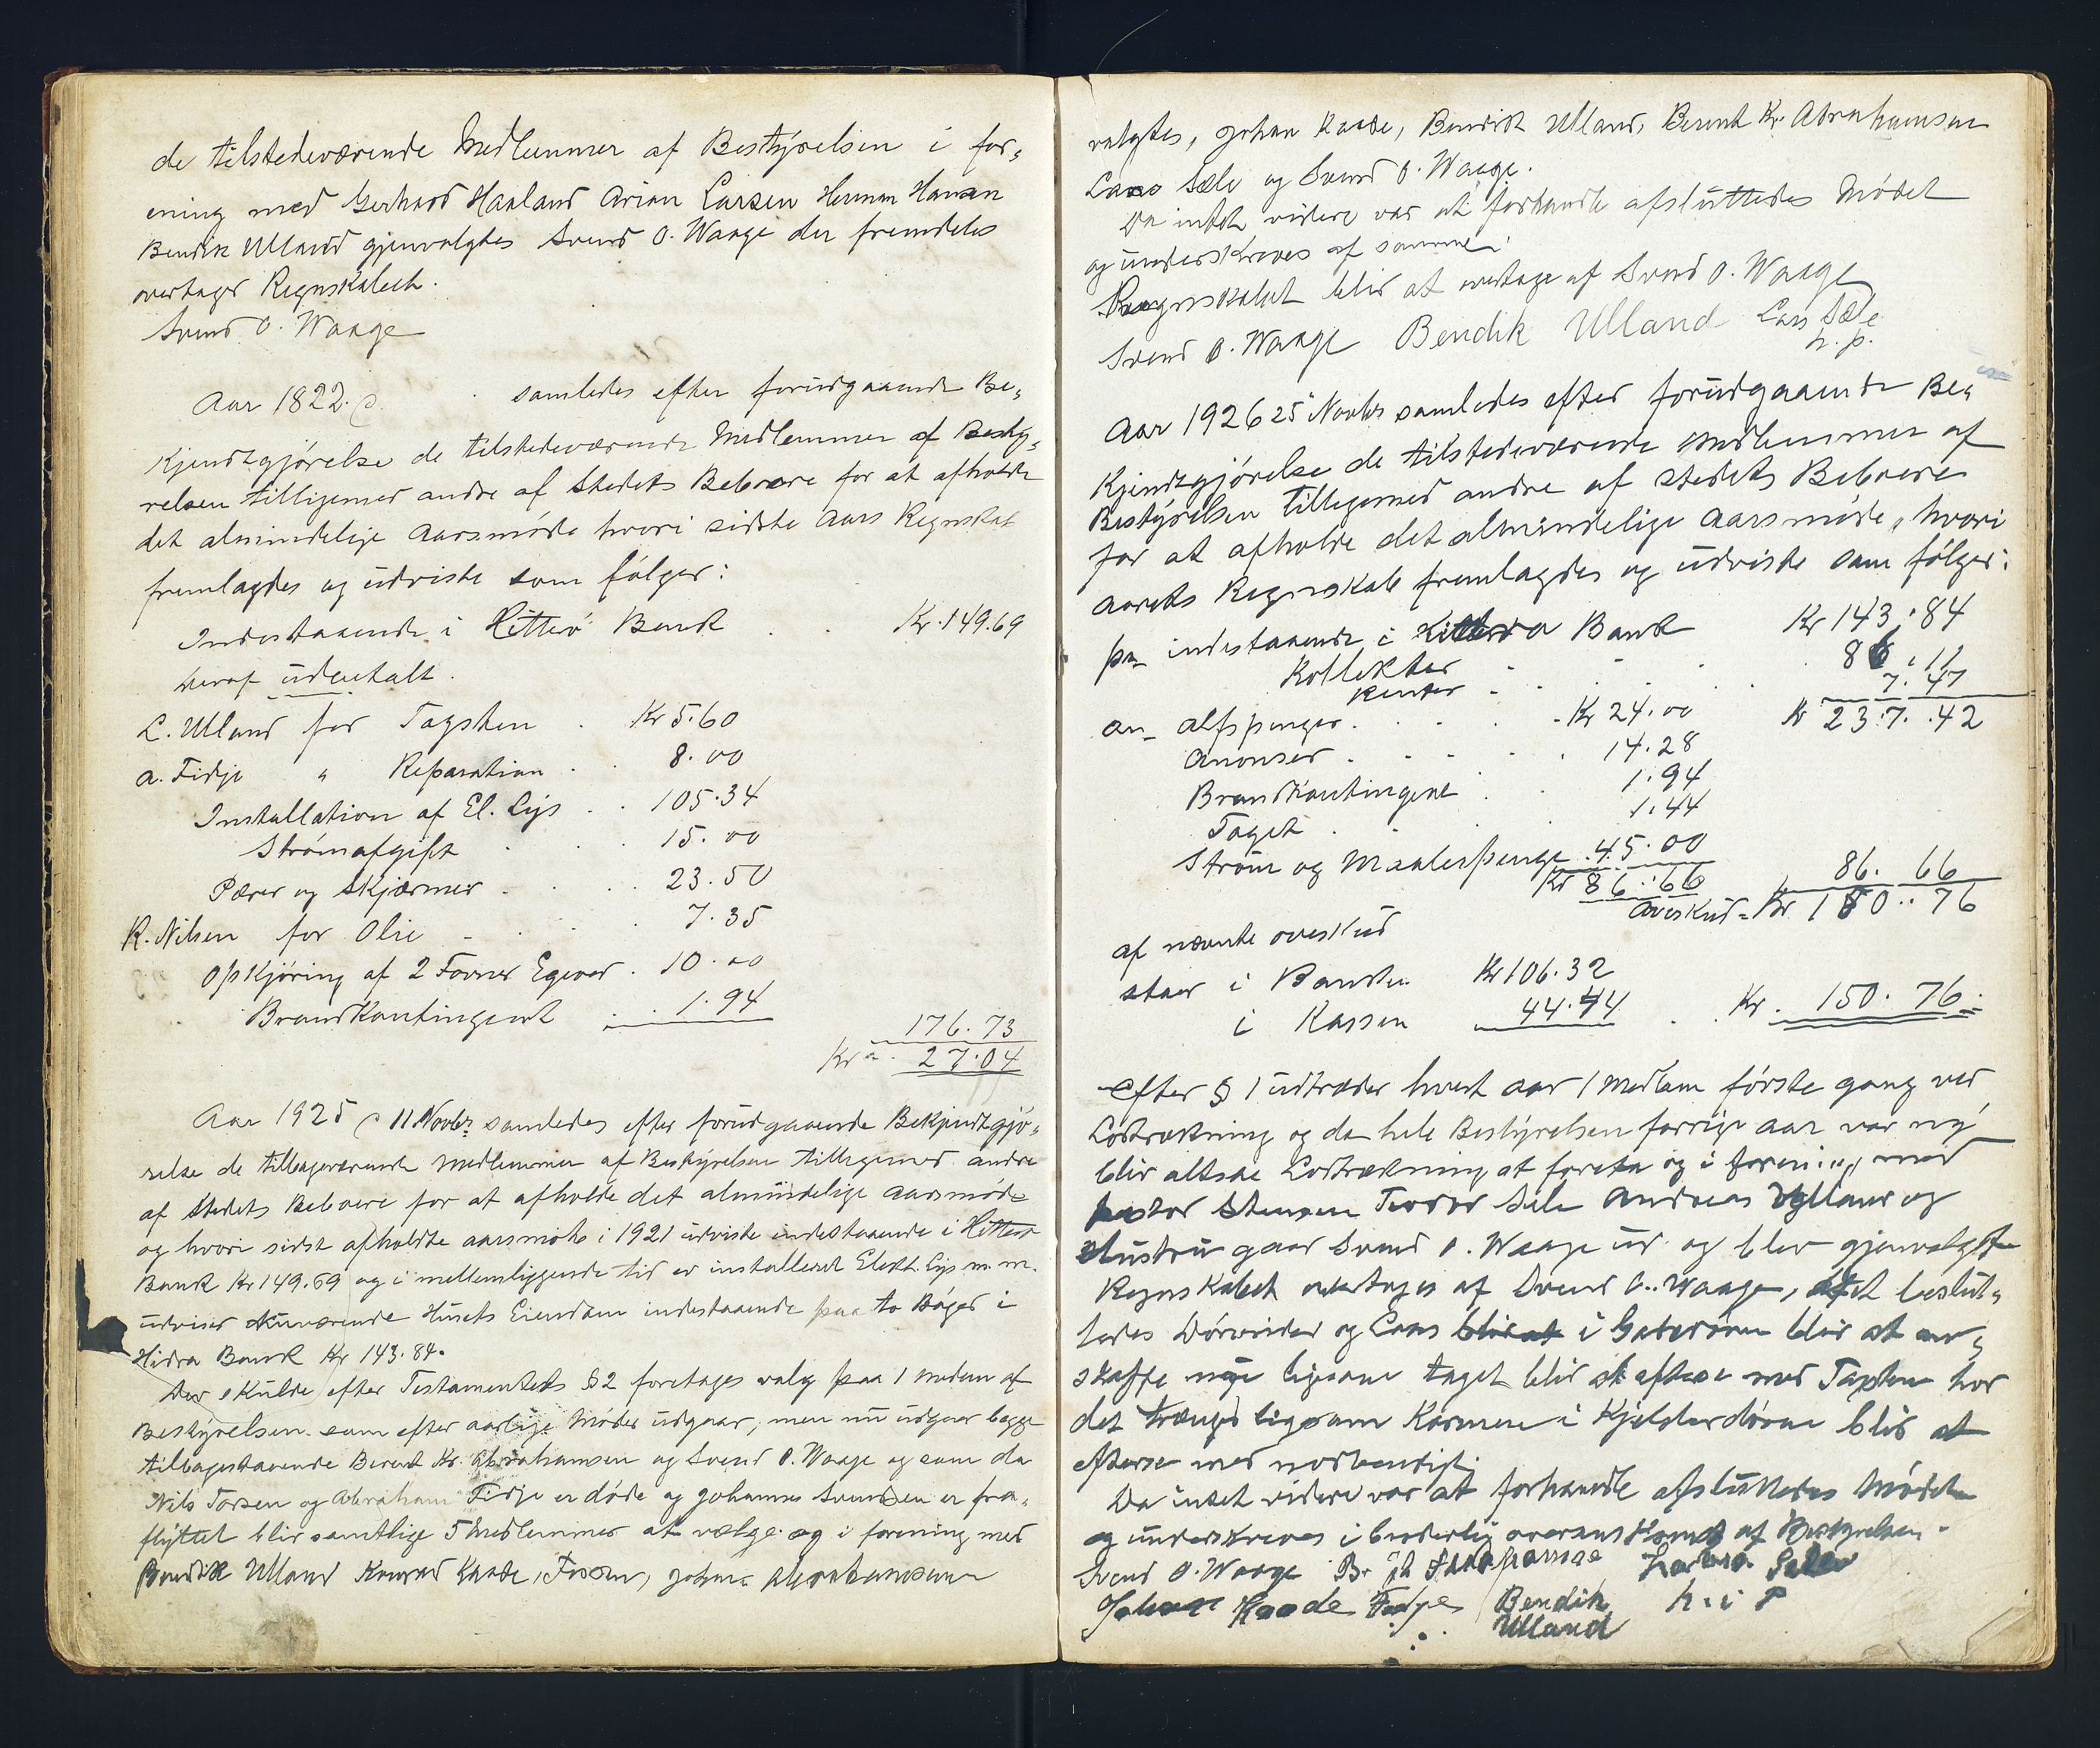 de tilstedeværende Medlemmer af Bestyrelsen i for„
ening med Gerhard Haaland Arian Larsen Herman Hansen
Bendik Ulland gjenvalgtes Svend O. Waage der fremdeles
overtager Regnskabet.
Svend O. Waage
Aar 1822. samledes efter forudgaaende Be„
kjendtgjørelse de tilstedeværende Medlemmer af Besty„
relsen tilligemed andre af Stedets Beboere for at afholde
det almindelige Aarsmøde hvori sidste Aars Regnskab
fremlagdes og udviste som følger:
Indestaaende i Hitterø Bank . . Kr. 149.69
heraf udbetalt.
L. Ulland for Tagsten . Kr 5.60
A. Fidje " Reparation . . 8.00
Installation af El. Lys . . 105.34
Strømafgift . . . 15.00
Pærer og Skjærmer . . . 23.50
R. Nilsen for Olie . . . 7.35
Opkjøring af 2 Favner Egeved . 10.00
Brandkontingent . . 1.94
176.73
Kr 27.04
Aar 1925 11 Novbr samledes efter forudgaaende Bekjendtgjø„
relse de tilbageværende Medlemmer af Bestyrelsen tilligemed andre
af Stedets Beboere for at afholde det almindelige Aarsmøde
og hvori sidst afholdte aarsmøte i 1921 udviste indestaaende i Hitterø
Bank Kr 149.69 og i mellemliggende tid er installeret Elekt. Lys m. m.
udviser nuværende Husets Eiendom indestaaende paa to Bøger i
Hidra Bank Kr 143.84.
Der skulde efter Testamentets § 2 foretages valg paa 1 medlem af
Bestyrelsen som efter aarlige Møder udgaar, men nu udgaar begge
tilbagestaaende Berent Kr. Abrahamsen og Svend O. Waage og som da
Nils Torsen og Abraham Fidje er døde og Johannes Svendsen er fra„
flyttet blir samtlige 5 Medlemmer at vælge og i forening med
Bendik Ulland Konrad Kaade, Fosen, Johan Abrahamsen
valgtes, Johan Kaade, Bendik Ulland, Berent Kr. Abrahamsen
Lars Sæle og Svend O. Waage.
Da intet videre var at forhandle afsluttedes Mødet
og underskreves af samme.
Regnskabet blir at overtage af Svend O. Waage
Svend O. Waage Bendik Ulland Lars Sæle
h. p.
Aar 1926 25 Novbr samledes efter forudgaaende Be„
kjendtgjørelse de tilstedeværende Medlemmer af
Bestyrelsen tilligemed andre af Stedets Beboere
for at afholde det almindelige Aarsmøde, hvori
Aarets Regnskab fremlagdes og udviste som følger:
pr. indestaaende i Hitterø Bank Kr 143.84
Kollekter . . . . 86.11
Renter . . . . 7.47
an Alfspenger . . . . Kr 24.00 Kr 237.42
Anonser . . . . 14.28
Brandkontingent . . 1.94
Taget . . 1.44
Strøm og Maalerpenge . 45.00
Kr 86.66 86.66
Overskud Kr 150.76
af nævnte overskud
staar i Banken Kr 106.32
i Kassen 44.44 . . Kr. 150.76
Efter § 1 udtræder hvert aar 1 Medlem første gang ved
Lodtrækning og da hele Bestyrelsen forrige aar var ny
blir altsaa Lodtrækning at foreta og i forening med
pastor Stensen Teodor Sæle Andreas Ulland og
Hustru gaar Svend O. Waage ud og blev gjenvalgt
Regnskabet overtages af Svend O. Waage, Det beslut„
tedes Dørvrider og Laas i Gatedøren blir at an„
skaffe nye ligesaa taget blir at efterse med Tagsten hvor
det trænges ligsom Karmene i Kjelderdøren blir at
efterse med nødvendigt.
Da intet videre var at forhandle afsluttedes Mødet
og underskreves i broderlig overenskomst af Bestyrelsen.
Svend O. Waage
Johan Kaade Fidje Bendik h. i P
Ulland